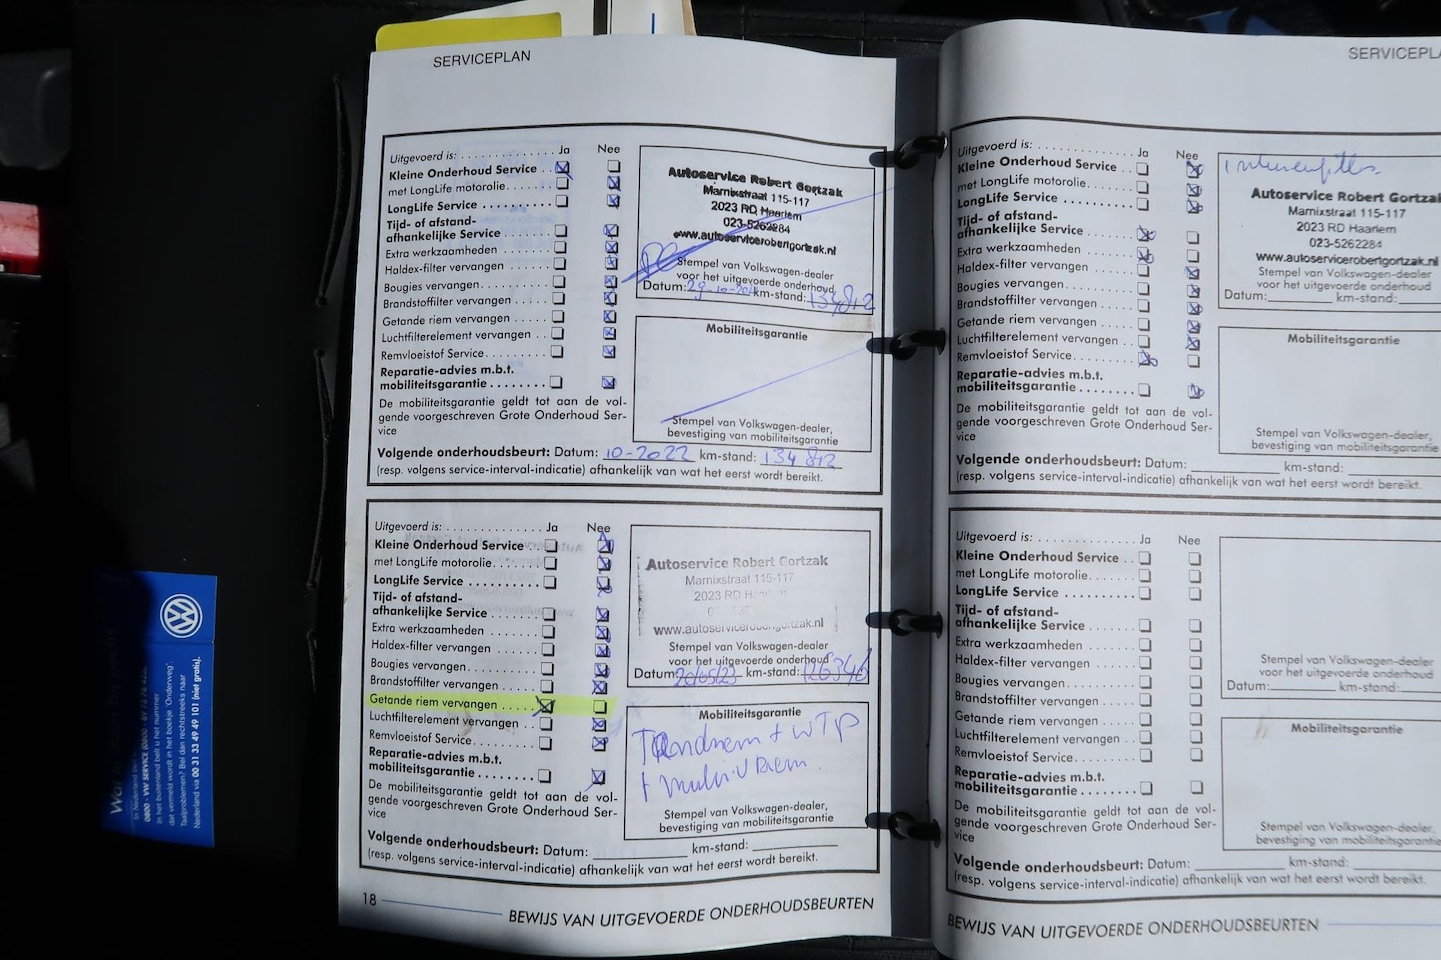 SERVICEPLAN
Uitgevoerd is: Ja Nee
Kleine Onderhoud Service
met LongLife motorolie
LongLife Service
Tijd- of afstand-
afhankelijke Service
Extra werkzaamheden
Haldex-filter vervangen
Bougies vervangen
Brandstoffilter vervangen
Getande riem vervangen
Luchtfilterelement vervangen
Remvloeistof Service
Reparatie-advies m.b.t.
mobiliteitsgarantie
De mobiliteitsgarantie geldt tot aan de vol-
gende voorgeschreven Grote Onderhoud Ser-
vice
Autoservice Robert Gortzak
Marnixstraat 115-117
2023 RD Haarlem
023-5262284
www.autoservicerobertgortzak.nl
Stempel van Volkswagen-dealer
voor het uitgevoerde onderhoud
Datum: km-stand: 134812
Mobiliteitsgarantie
Stempel van Volkswagen-dealer,
bevestiging van mobiliteitsgarantie
Volgende onderhoudsbeurt: Datum: 10-2022 km-stand: 134 812
(resp. volgens service-interval-indicatie) afhankelijk van wat het eerst wordt bereikt.
Uitgevoerd is: Ja Nee
Kleine Onderhoud Service
met LongLife motorolie
LongLife Service
Tijd- of afstand-
afhankelijke Service
Extra werkzaamheden
Haldex-filter vervangen
Bougies vervangen
Brandstoffilter vervangen
Getande riem vervangen
Luchtfilterelement vervangen
Remvloeistof Service
Reparatie-advies m.b.t.
mobiliteitsgarantie
De mobiliteitsgarantie geldt tot aan de vol-
gende voorgeschreven Grote Onderhoud Ser-
vice
Autoservice Robert Gortzak
Marnixstraat 115-117
2023 RD
www.autoservicerobertgortzak.nl
Stempel van Volkswagen-dealer
voor het uitgevoerde onderhoud
Datum: km-stand:
Mobiliteitsgarantie
Tandriem + WTP
+ Multi V Riem
Stempel van Volkswagen-dealer,
bevestiging van mobiliteitsgarantie
Volgende onderhoudsbeurt: Datum: km-stand:
(resp. volgens service-interval-indicatie) afhankelijk van wat het eerst wordt bereikt.
18
BEWIJS VAN UITGEVOERDE ONDERHOUDSBEURTEN
SERVICEPLA
Uitgevoerd is: Ja Nee
Kleine Onderhoud Service
met LongLife motorolie
LongLife Service
Tijd- of afstand-
afhankelijke Service
Extra werkzaamheden
Haldex-filter vervangen
Bougies vervangen
Brandstoffilter vervangen
Getande riem vervangen
Luchtfilterelement vervangen
Remvloeistof Service
Reparatie-advies m.b.t.
mobiliteitsgarantie
De mobiliteitsgarantie geldt tot aan de vol-
gende voorgeschreven Grote Onderhoud Ser-
vice
Autoservice Robert Gortzak
Marnixstraat 115-117
2023 RD Haarlem
023-5262284
www.autoservicerobertgortzak.nl
Stempel van Volkswagen-dealer
voor het uitgevoerde onderhoud
Datum: km-stand:
Mobiliteitsgarantie
Stempel van Volkswagen-dealer,
bevestiging van mobiliteitsgarantie
Volgende onderhoudsbeurt: Datum: km-stand:
(resp. volgens service-interval-indicatie) afhankelijk van wat het eerst wordt bereikt.
Uitgevoerd is: Ja Nee
Kleine Onderhoud Service
met LongLife motorolie
LongLife Service
Tijd- of afstand-
afhankelijke Service
Extra werkzaamheden
Haldex-filter vervangen
Bougies vervangen
Brandstoffilter vervangen
Getande riem vervangen
Luchtfilterelement vervangen
Remvloeistof Service
Reparatie-advies m.b.t.
mobiliteitsgarantie
De mobiliteitsgarantie geldt tot aan de vol-
gende voorgeschreven Grote Onderhoud Ser-
vice
Stempel van Volkswagen-dealer
voor het uitgevoerde onderhoud
Datum: km-stand:
Mobiliteitsgarantie
Stempel van Volkswagen-dealer,
bevestiging van mobiliteitsgarantie
Volgende onderhoudsbeurt: Datum: km-stand:
(resp. volgens service-interval-indicatie) afhankelijk van wat het eerst wordt bereikt.
BEWIJS VAN UITGEVOERDE ONDERHOUDSBEURTEN
In het buitenland belt u het nummer
dat vermeld wordt in het boekje 'Onderweg'.
Taalproblemen? Bel dan rechtstreeks naar
Nederland via 00 31 33 49 49 101 (niet gratis).